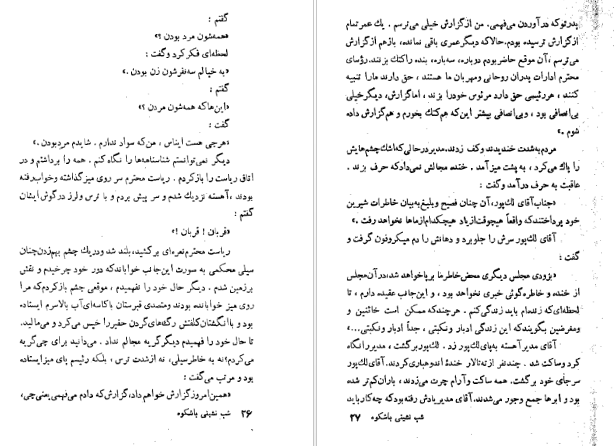 گفتم :
«همه‌شون مرد بودن ؟»
لحظه‌ای فکر کرد و گفت :
«به خیالم سه‌نفرشون زن بودن .»
گفتم :
«این‌ها که همه‌شون مردن ؟»
گفت :
«هرچی هست ایناس ، من که سواد ندارم . شایدم مرد بودن .»
دیگر نمی‌توانستم شناسنامه‌ها را نگاه کنم . همه را برداشتم و در
اتاق ریاست را باز کردم . ریاست محترم سر روی میز گذاشته و خواب رفته
بودند ، آهسته نزدیک شدم و سر پیش بردم و با ترس و لرز در گوش ایشان
گفتم :
«قربان ! قربان !»
ریاست محترم نعره‌ای برکشید، بلند شد و در یک چشم بهم‌زدن چنان
سیلی محکمی به صورت این‌جانب خواباند که دور خود چرخیدم و نقش
برزمین شدم . دیگر حال خود را نفهمیدم ، موقعی چشم باز کردم که مرا
روی میز خوابانده بودند و متصدی قبرستان با کاسه‌ای آب بالاسرم ایستاده
بود و با انگشتان کلفتش رگ‌های گردن حقیر را خیس می‌کرد و می‌مالید.
تا حال خود را فهمیدم دیگر گریه مجالم نداد . می‌دانید برای چی گریه
می‌کردم؟ نه به خاطر سیلی، نه از شدت ترس ، بلکه رئیسم پای میز ایستاده
بود و مرتب می‌گفت :
«همین امروز گزارش خواهم داد، گزارش که دادم می‌فهمی یعنی چی،
شب نشینی باشکوه ۲۶
پدرتو که درآوردن می‌فهمی. من از گزارش خیلی می‌ترسم . یک عمر تمام
از گزارش ترسیده بودم. حالا که دیگر عمری باقی نمانده، بازهم از گزارش
می‌ترسم ، آن موقع حاضر بودم دوباره، سه‌باره، بنده را کتک بزنند. رؤسای
محترم ادارات پدران روحانی و مهربان ما هستند ، حق دارند ما را تنبیه
کنند ، هر رئیسی حق دارد مرئوس خود را بزند ، اما گزارش، دیگر خیلی
بی‌انصافی بود ، و بی‌انصافی بیشتر این که هم کتک بخورم و هم گزارش داده
شوم .»
مردم به شدت خندیدند و کف زدند. مدیر در حالی که اشک چشم‌هایش
را پاک می‌کرد ، به پشت میز آمد . خنده مجالش نمی‌داد که حرف بزند .
عاقبت به حرف درآمد و گفت :
«جناب آقای لک‌پور، آن چنان فصیح و بلیغ به بیان خاطرات شیرین
خود پرداختند که واقعاً هیچوقت از یاد هیچکدام از ماها نخواهد رفت .»
آقای لک‌پور سرش را جلو برد و دهانش را دم میکروفون گرفت و
گفت :
«بزودی مجلس دیگری محض خاطر ما برپا خواهد شد، در آن مجلس
از خنده و خاطره گوئی خبری نخواهد بود ، و این‌جانب عقیده دارم ، تا
لحظه‌ای که زنده‌ام باید زندگی کنم . هرچند که ممکن است خائنین و
ومغرضین بگویند که این زندگی ادبار و نکبتی ، جداً ادبار و نکبتی...»
آقای مدیر آهسته به پای لک‌پور زد . لک‌پور برگشت ، مدیر را نگاه
کرد و ساکت شد . چند نفر از ته تالار خندهٔ اندوهباری کردند. آقای لک‌پور
سرجای خود برگشت. همه ساکت و آرام چرت می‌زدند ، باران کم‌تر شده
بود و ابرها جمع و جور می‌شدند. آقای مدیر یادش رفته بود که چه کار باید
شب نشینی باشکوه ۲۷